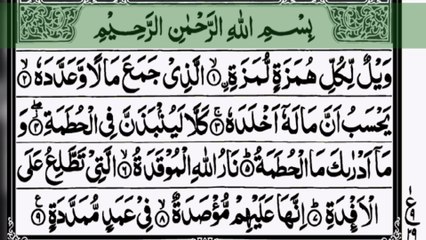 بِسْمِ اللهِ الرَّحْمٰنِ الرَّحِيْمِ
وَيْلٌ لِّكُلِّ هُمَزَةٍ لُّمَزَةِ ۙ﴿۱﴾ الَّذِيْ جَمَعَ مَالًا وَّعَدَّدَهٗ ۙ﴿۲﴾
يَحْسَبُ اَنَّ مَالَهٗۤ اَخْلَدَهٗ ۚ﴿۳﴾ كَلَّا لَيُنْۢبَذَنَّ فِي الْحُطَمَةِ ۖ﴿۴﴾ وَ
مَاۤ اَدْرٰىكَ مَا الْحُطَمَةُ ؕ﴿۵﴾ نَارُ اللهِ الْمُوْقَدَةُ ۙ﴿۶﴾ الَّتِيْ تَطَّلِعُ عَلَى
الْاَفْـِٕدَةِ ؕ﴿۷﴾ اِنَّهَا عَلَيْهِمْ مُّؤْصَدَةٌ ۙ﴿۸﴾ فِيْ عَمَدٍ مُّمَدَّدَةٍ ۠﴿۹﴾
ع
۹
۲۹